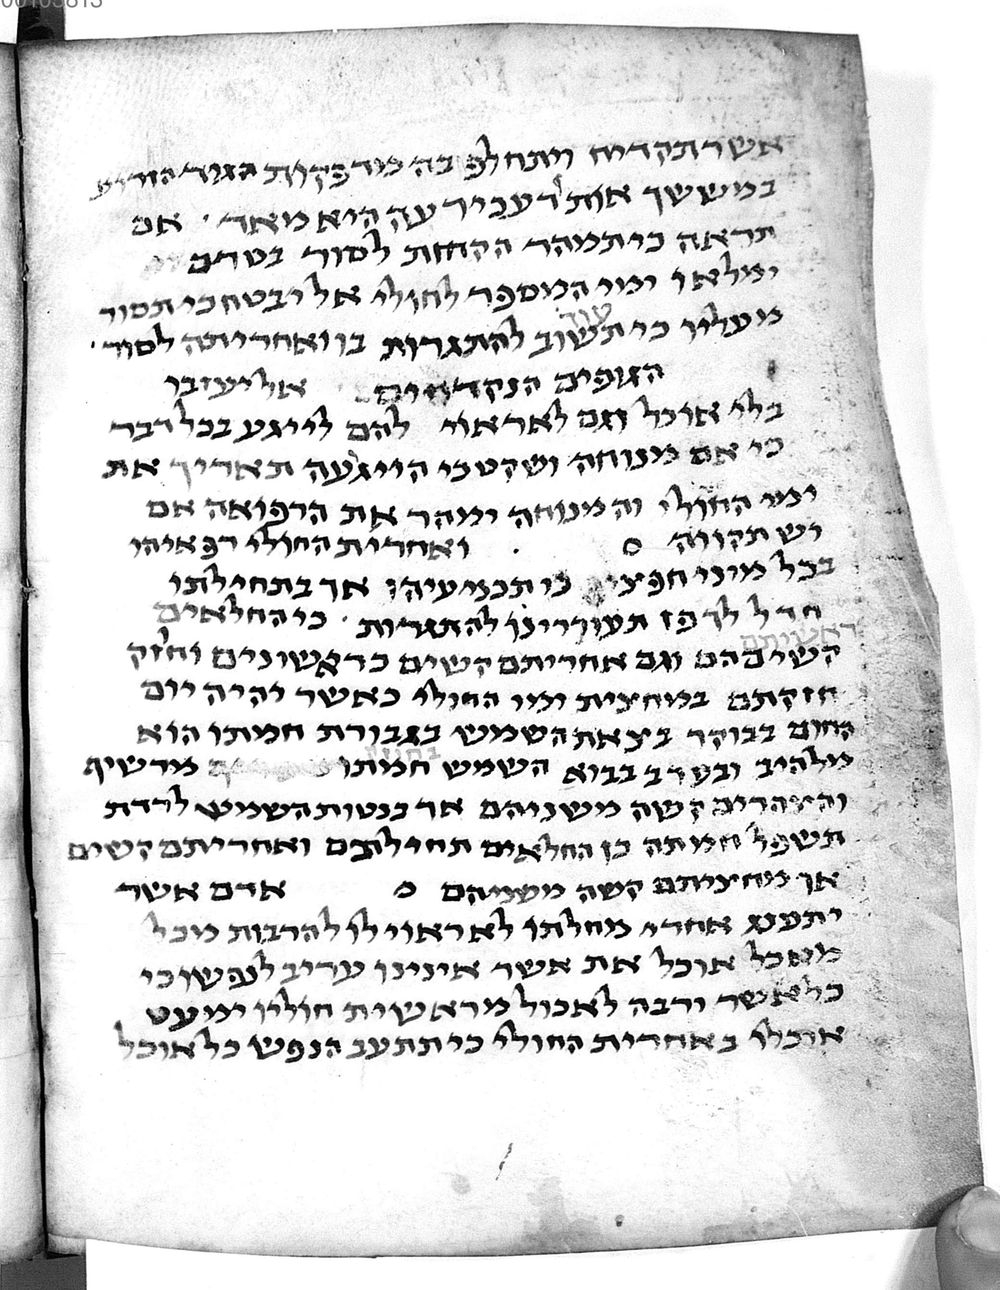 00105813
אשר תקדיח ויתחלף בה מדפקות הגוד הזרוע
במששך אותו דע כי רעה היא מאד · אם
תראה כי תמהר הקדחת לסור בטרם
ימלאו ימי המספר לחולי אל יבטח כי תסור
עוד
מעליו כי תשוב להתגרות בו ואחריתה לסור ·
הגופים הנקדחים אל יעזבו
בלי אוכל וגם לא ראוי להם לייגע בכל דבר
כי אם מנוחה ושקט כי הויגעה תאריך את
ימי החולי והמנוחה ימהר את הרפואה אם
יש תקווה ואחרית החולי רפאיהו
בכל מיני חפציך כי תכניעיהו אך בתחילתו
חדל לך פן תעוררינו להתגרות · כי החלאים
ראשיתם
קשי בהם וגם אחריתם קשים כראשונים וחזק
חזקתם במחצית ימי החולי כאשר יהיה יום
החום בבוקר בצאת השמש בגבורת חמתו הוא
מלהיב ובערב בבוא השמש חמתו מרשיף
והצהרים קשה משניהם אך בנטות השמש לרדת
תשפל חמתה כן החלאים תחילתם ואחריתם קשים
אך מחציתם קשה משניהם אדם אשר
יתענג אחרי מחלתו לא ראוי לו להרבות מכל
מאכל אוכל את אשר אינינו עריב לנפשו כי
כל אשר ירבה לאכול מראשית חוליו ימעט
אוכלו באחרית החולי כי תתעב הנפש כל אוכל